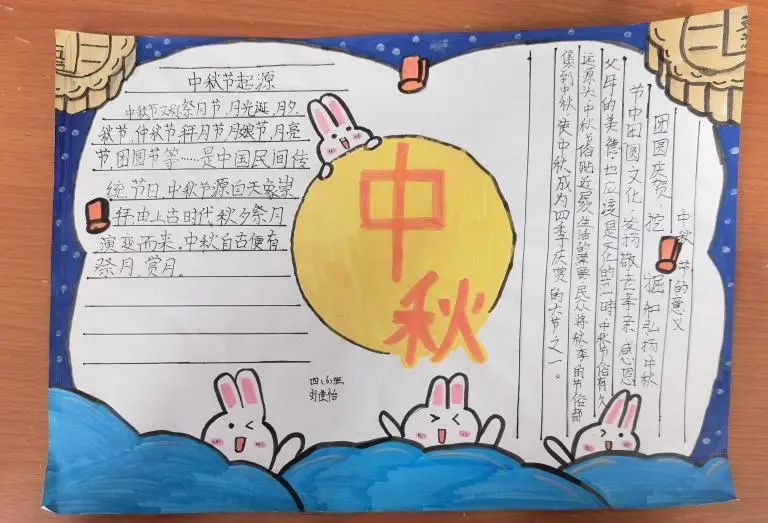 中秋节起源
中秋节又称祭月节、月光诞、月夕、
秋节、仲秋节、拜月节、月娘节、月亮
节、团圆节等……是中国民间传
统节日,中秋节源自天象崇
拜,由上古时代秋夕祭月
演变而来。中秋自古便有
祭月、赏月。
中秋
四(6)班
刘佳怡
中秋节的意义
团圆庆贺 挖掘和弘扬中秋
节中团圆文化,发扬敬老孝亲感恩
父母的美德,也应该是文化的
运源头中秋节俗贴近民众生活的需要,民众将秋季的节俗都
集到中秋,使中秋成为四季庆赏的大节之一。